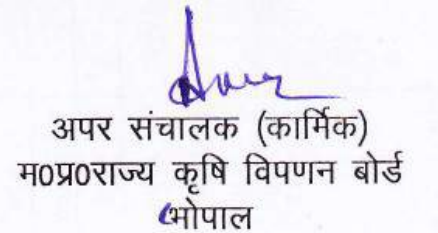 अपर संचालक (कार्मिक)
म०प्र०राज्य कृषि विपणन बोर्ड
भोपाल